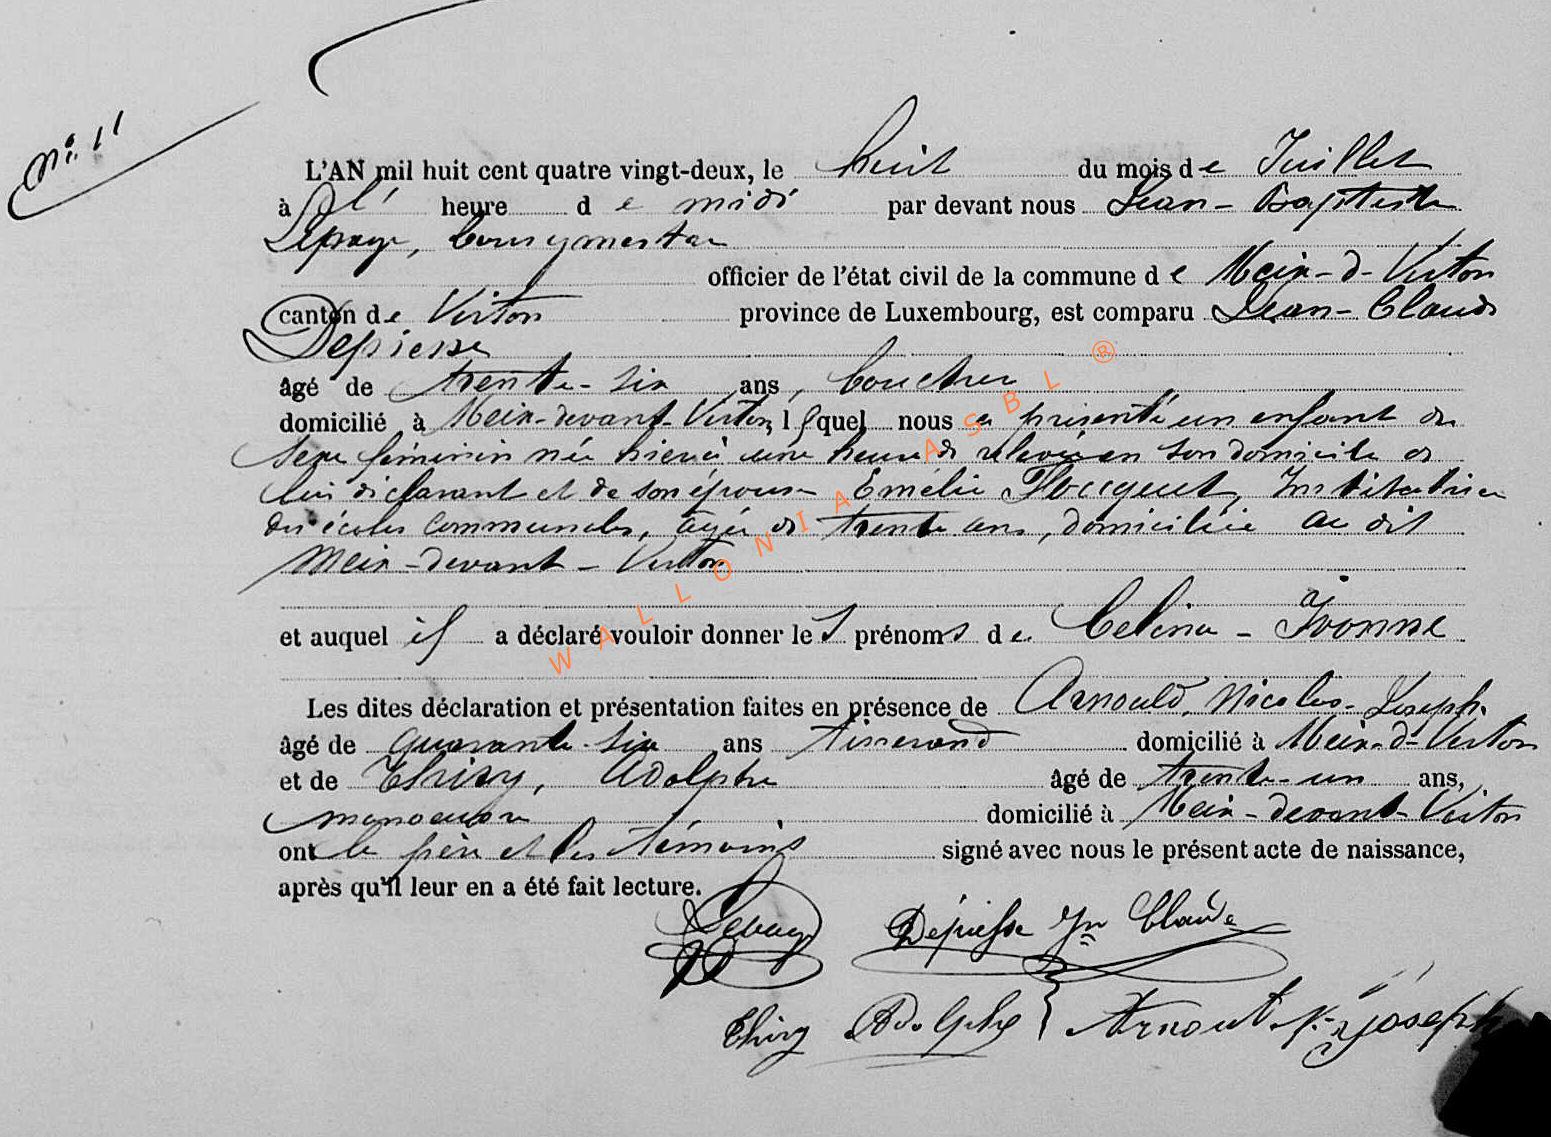 N° 11
L'AN mil huit cent quatre vingt-deux, le huit du mois de Juillet
à l' heure de midi par devant nous Jean-Baptiste
Lepage, Bourgmestre
officier de l'état civil de la commune de Meix-d-Virton
canton de Virton province de Luxembourg, est comparu Jean-Claude
Depiesse
âgé de trente-six ans, boucher
domicilié à Meix-devant-Virton, lequel nous a présenté un enfant du
sexe féminin née hier à une heure de relevée en son domicile de
lui déclarant et de son épouse Emélie Flocquet, Institutrice
des écoles communales, âgée de trente ans, domiciliée au dit
Meix-devant-Virton
et auquel il a déclaré vouloir donner les prénoms de Celina-Yvonne
Les dites déclaration et présentation faites en présence de Arnould, Nicolas-Joseph
âgé de quarante-six ans tisserand domicilié à Meix-d-Virton
et de Thiry, Adolphe âgé de trente-un ans,
manoeuvre domicilié à Meix-devant-Virton
ont le père et les témoins signé avec nous le présent acte de naissance,
après qu'il leur en a été fait lecture.
Lepage Dépiesse Jn Claude
Thiry Adolphe Arnould N. Joseph
WALLONIA ASBL ®